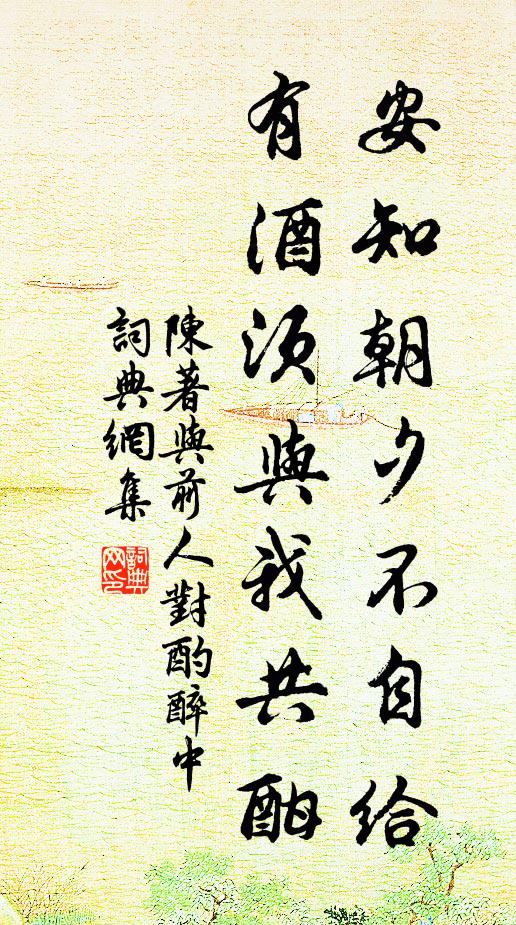 安知朝夕不自給
有酒須與我共酣
陳著與前人對酌醉中
詞典網集
詞典
网印